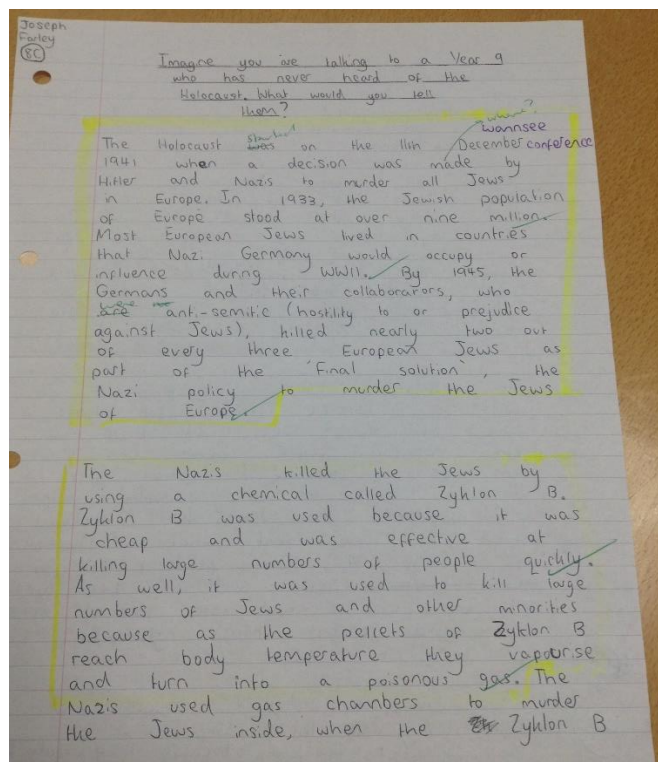 Joseph
Farley
8C
Imagine you are talking to a Year 9
who has never heard of the
Holocaust. What would you tell
them?
wannsee
The Holocaust was started on the 11th December conference
1941 when a decision was made by
Hitler and Nazis to murder all Jews
in Europe. In 1933, the Jewish population
of Europe stood at over nine million.
Most European Jews lived in countries
that Nazi Germany would occupy or
influence during WWII. By 1945, the
Germans and their collaborators, who
are were anti-semitic (hostility to or prejudice
against Jews), killed nearly two out
of every three European Jews as
part of the 'Final solution', the
Nazi policy to murder the Jews
of Europe.
The Nazis killed the Jews by
using a chemical called Zyklon B.
Zyklon B was used because it was
cheap and was effective at
killing large numbers of people quickly.
As well, it was used to kill large
numbers of Jews and other minorities
because as the pellets of Zyklon B
reach body temperature they vapourise
and turn into a poisonous gas. The
Nazis used gas chambers to murder
the Jews inside, when the Zyklon B